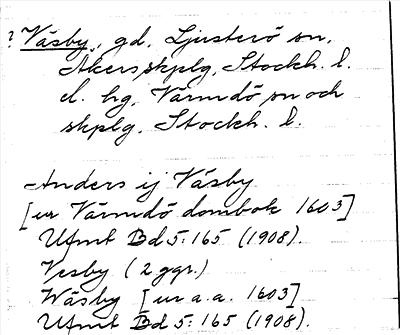 ? Väsby, gd, Ljusterö sn,
Åkers skplg, Stockh. l.
el. hg, Värmdö sn och
skplg, Stockh. l.
Anders ij Väsby
[ur Värmdö dombok 1603]
Ufmt Bd 5: 165 (1908).
Vesby (2 ggr.)
Wäsby [ur a.a. 1603]
Ufmt Bd 5: 165 (1908).